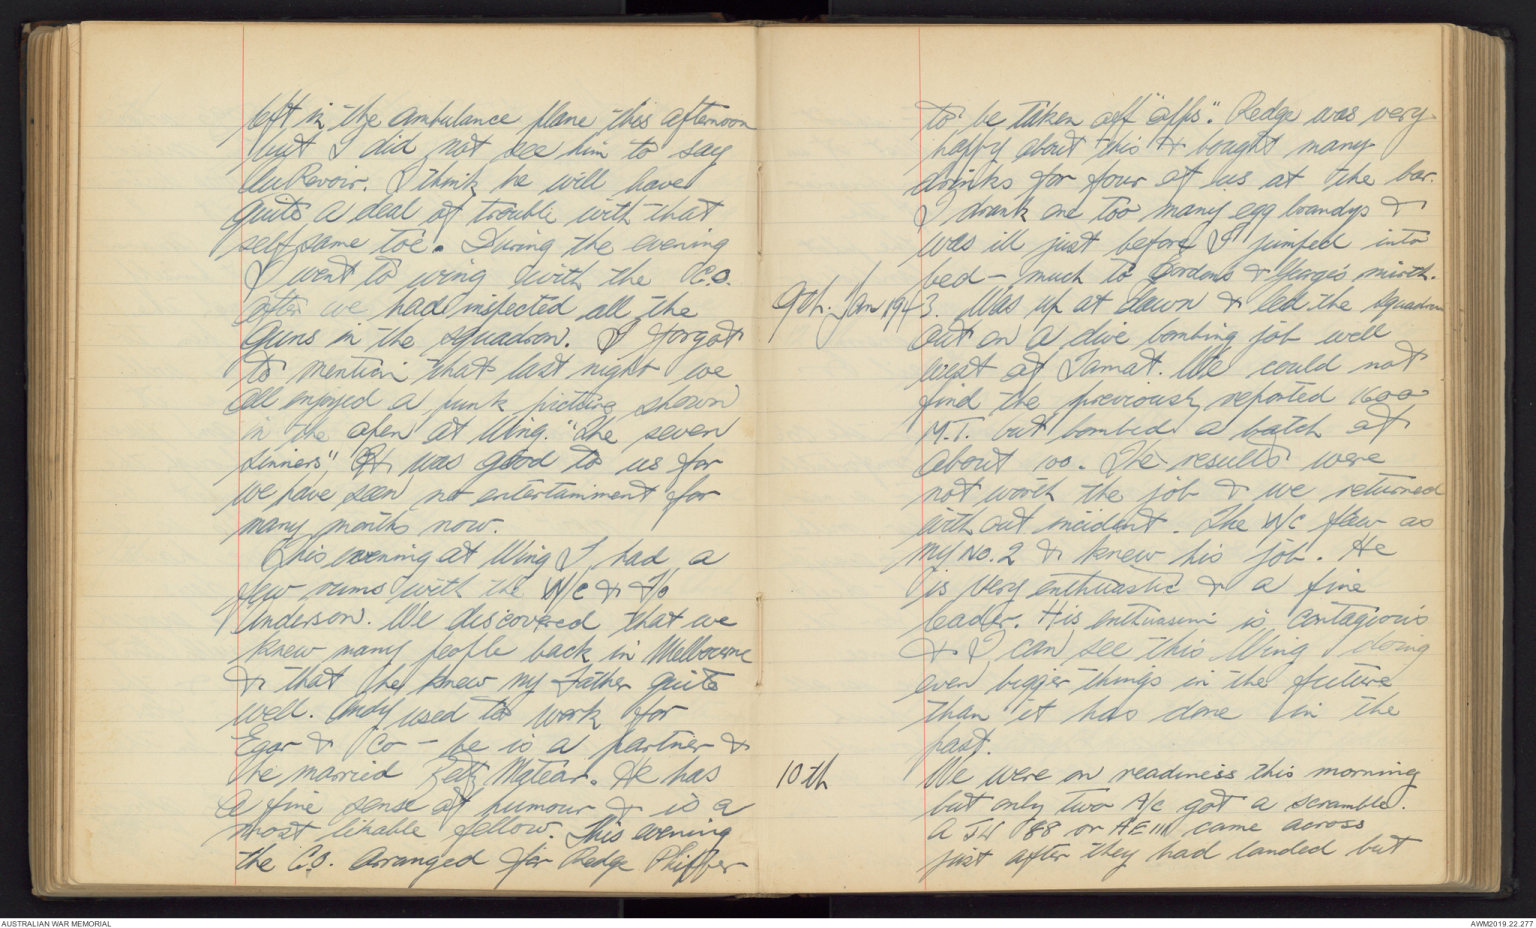 left in the ambulance plane this afternoon
but I did not see him to say
AuRevoir. I think he will have
quite a deal of trouble with that
selfsame toe. During the evening
I went to wing with the C.O.
after we had inspected all the
guns in the squadron. I forgot
to mention that last night we
all enjoyed a punk picture shown
in the open at Wing. "The seven
sinners", It was good to us for
we have seen no entertainment for
many months now.
This evening at Wing I had a
few rums with the W/C & F/O
Anderson. We discovered that we
knew many people back in Melbourne
& that he knew my Father quite
well. Andy used to work for
Egar & Co - he is a partner &
he married Betty Matear. He has
a fine sense of humour & is a
most likable fellow. This evening
the C.O. arranged for Redge Phiffer
to be taken off "offs". Redge was very
happy about this & bought many
drinks for four of us at the bar.
I drank one too many egg brandys &
was ill just before I jumped into
bed - much to Gordons & George's mirth.
9th. Jan 1943. Was up at dawn & led the squadron
out on a dive bombing job well
west of Tamat. We could not
find the previously reported 1600
M.T. but bombed a batch of
about 100. The results were
not worth the job & we returned
with out incident. The W/C flew as
my No. 2 & knew his job. He
is very enthuastic & a fine
leader. His enthuasim is contagious
& I can see this Wing doing
even bigger things in the future
than it has done in the
past.
10th We were on readiness this morning
but only two A/c got a scramble.
A JU 88 or HE111 came across
just after they had landed but
AUSTRALIAN WAR MEMORIAL
AWM2019.22.277